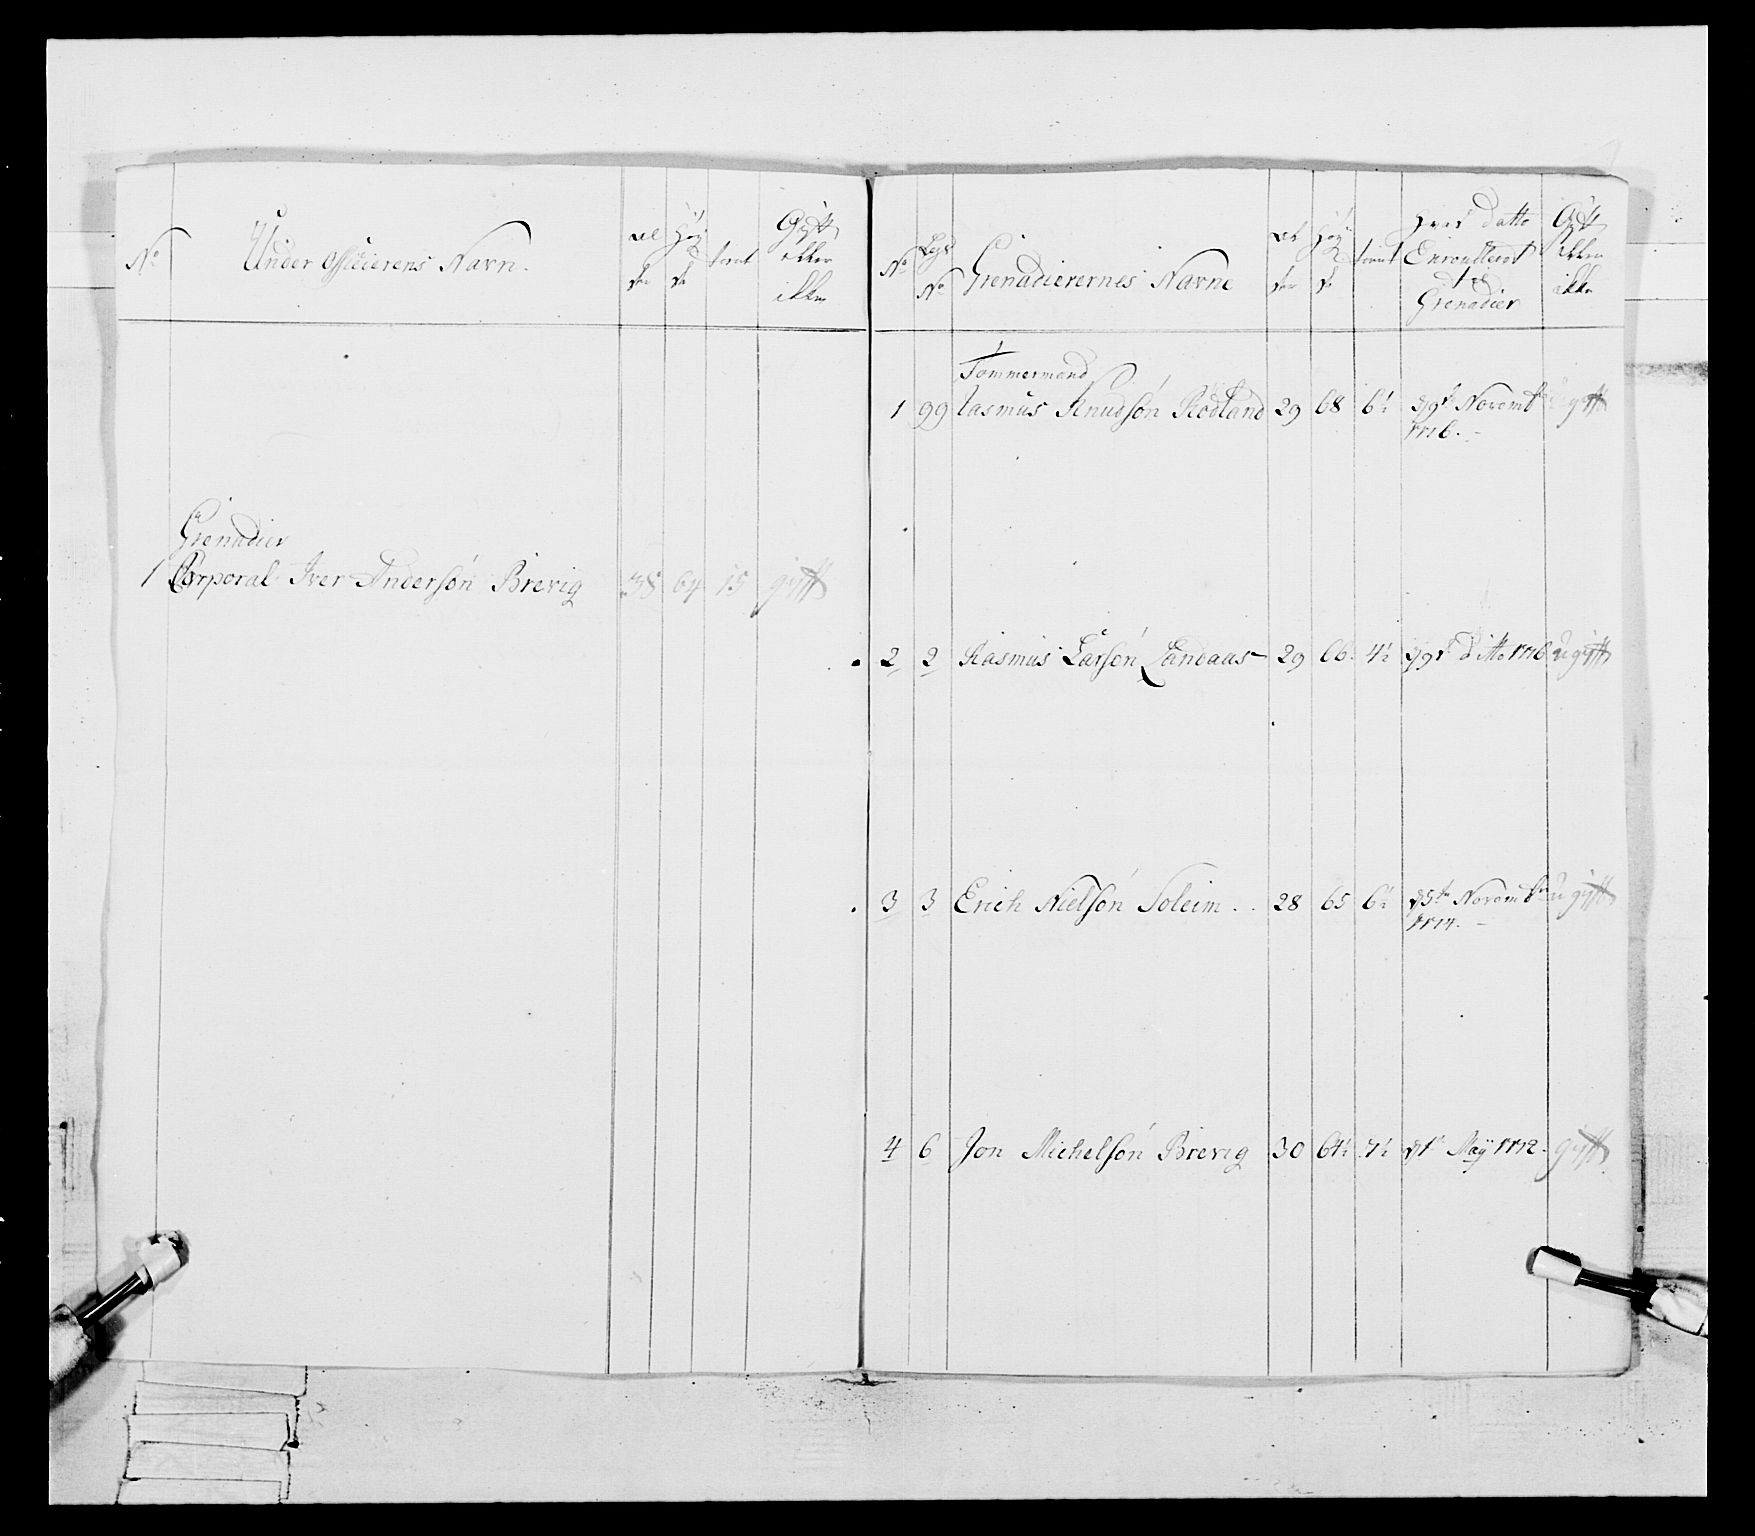 No
Under Officierens Navn.
Al
der
Høy
de
tient
Gift
eller
ikke
Grenadier
1 Corporal Iver Andersøn Brevig 38 64 15 gifft
No
Legs
No
Grenadierernes Navne
Al
der
Høy
de
tient
Hvad Datto
Enroullerdt
til
Grenadier
Gift
eller
ikke
Tømmermand
1 99 Rasmus Knudsøn Rødland 29 68 6½ d 9de Novembr ugifft
1776.
2 2 Rasmus Larsøn Landaas 29 66 4½ d 9de ditto 1776 ugifft
3 3 Erich Nielsøn Soleim .. 28 65 6½ d 5te Novembr ugifft
1774.
4 6 Jon Michelsøn Brevig 30 64½ 7½ d 1te Maÿ 1772. gifft